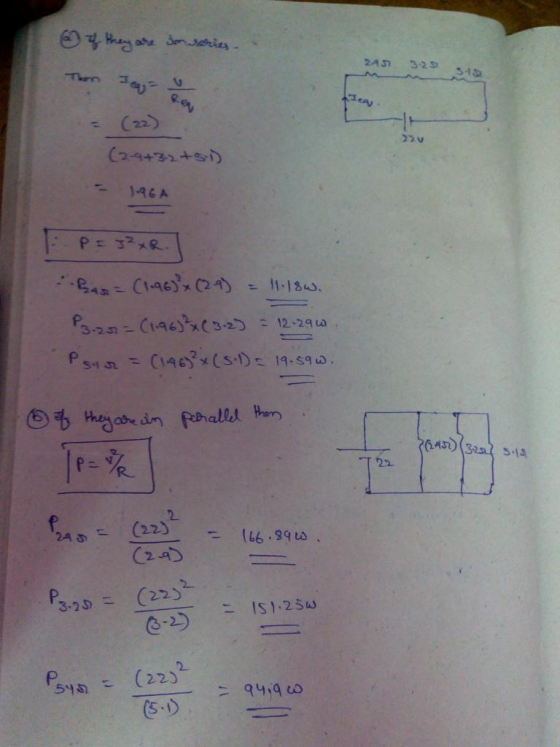 (a) If they are in series.
2.9Ω 3.2Ω 5.1Ω
Then Ieq = V/Req
Ieq.
= (22)/(2.9+3.2+5.1)
22V
= 1.96A
∴ P = I²×R.
∴ P2.9Ω = (1.96)²×(2.9) = 11.18W.
P3.2Ω = (1.96)²×(3.2) = 12.29W.
P5.1Ω = (1.96)²×(5.1) = 19.59W.
(b) If they are in parallel then
P = V²/R
22 (2.9Ω) 3.2Ω 5.1Ω
P2.9Ω = (22)²/(2.9) = 166.89W.
P3.2Ω = (22)²/(3.2) = 151.25W
P5.1Ω = (22)²/(5.1) = 94.9W